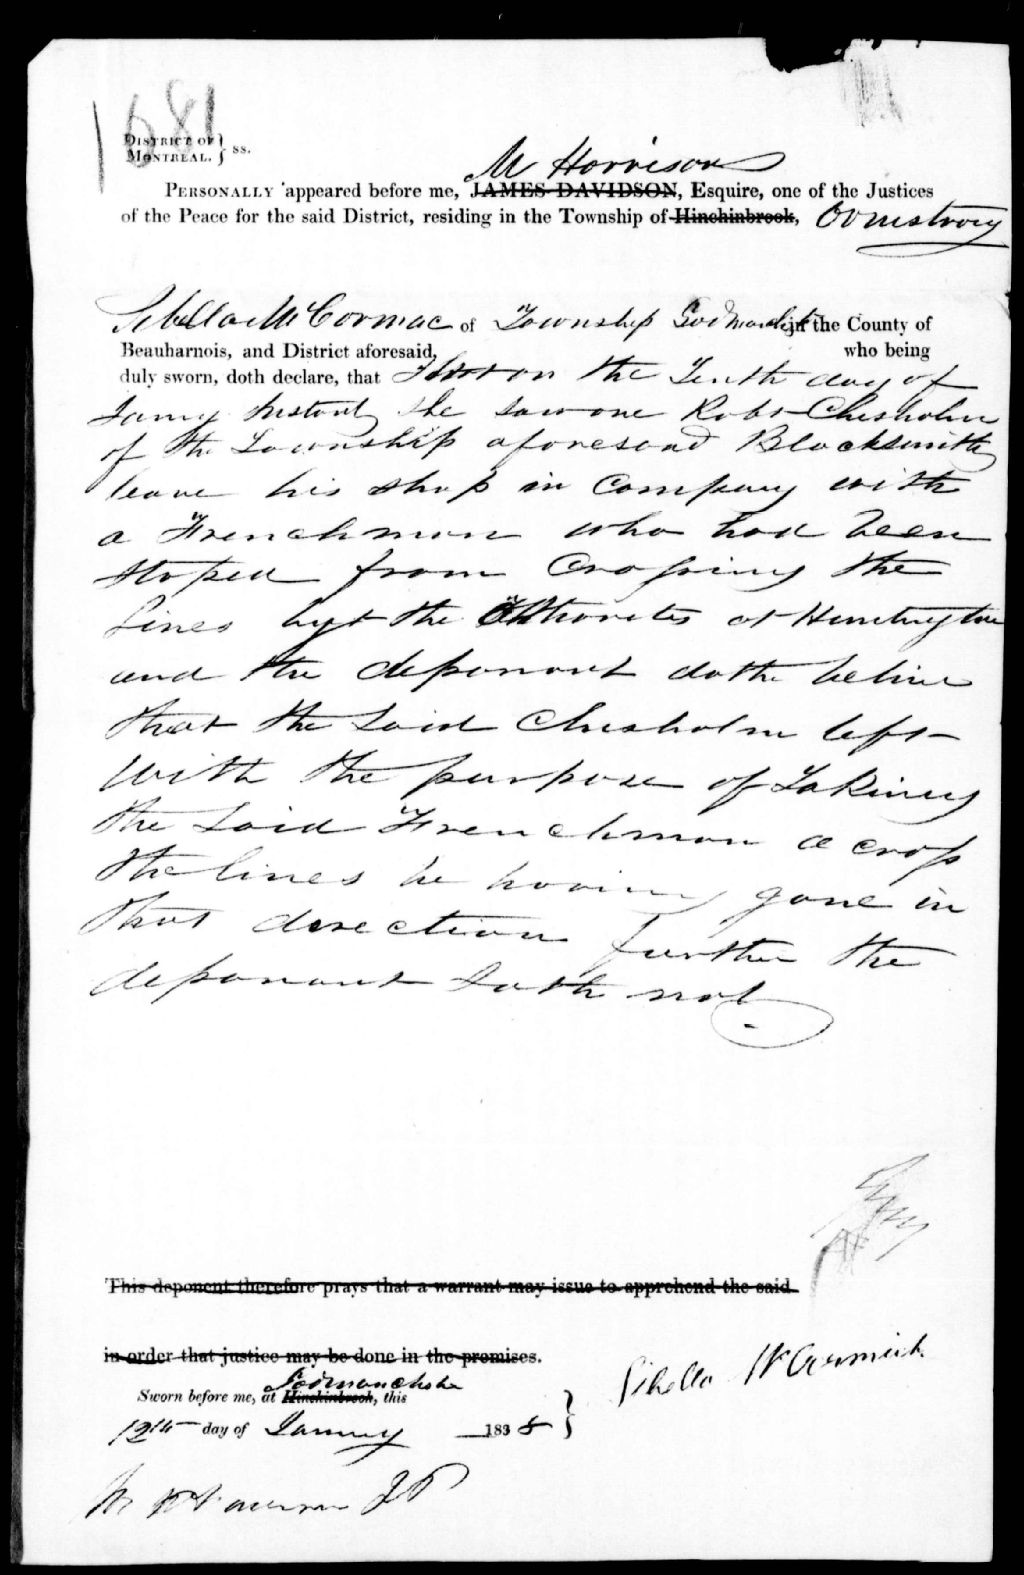 1681
DISTRICT OF
MONTREAL. } ss.
M Harrison
PERSONALLY appeared before me, JAMES DAVIDSON, Esquire, one of the Justices
of the Peace for the said District, residing in the Township of Hinchinbrook, Ormstrong
Sibella McCormac of Township Godmanchr in the County of
Beauharnois, and District aforesaid, who being
duly sworn, doth declare, that That on the Tenth day of
Jamy Instant she saw one Robt Chisholm
of the Township aforesaid Blacksmith
leave his shop in Company with
a Frenchman who had been
stoped from Crossing the
Lines byt the Athorites at Huntington
and the deponant doth belive
that the Said Chisholm left
With the purpose of Taking
the Said Frenchman a cross
the lines he having gone in
that direction further the
deponant Saith not
This deponent therefore prays that a warrant may issue to apprehend the said
in order that justice may be done in the premises.
Godmanchster
Sworn before me, at Hinchinbrook, this
12th day of Jamuy 1838
Sibella McCormick
M Harrison JP